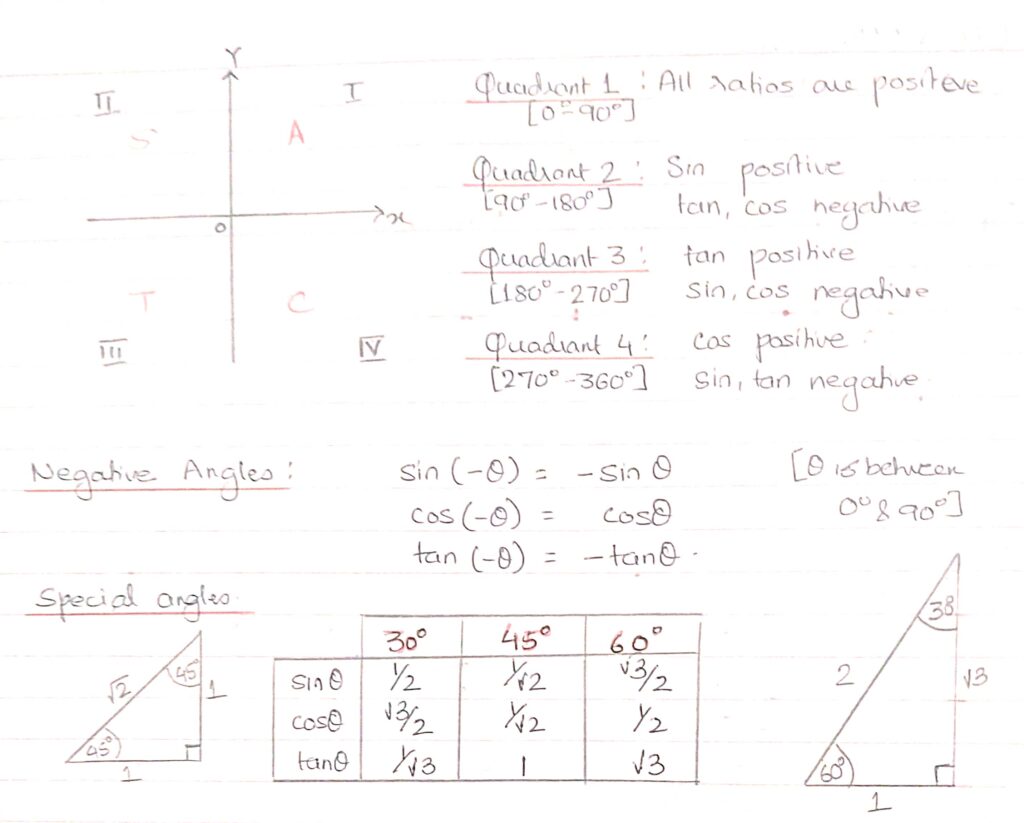 Y
II
I
S
A
x
0
T
C
III
IV
Quadrant 1 : All ratios are positive
[0°-90°]
Quadrant 2 : Sin positive
[90°-180°] tan, cos negative
Quadrant 3 : tan positive
[180°-270°] sin, cos negative
Quadrant 4 : cos positive
[270°-360°] sin, tan negative.
Negative Angles : sin (-θ) = -sin θ [θ is between
cos (-θ) = cosθ 0° & 90°]
tan (-θ) = -tanθ.
Special angles.
√2
45°
1
45°
1
30° 45° 60°
sinθ 1/2 1/√2 √3/2
cosθ √3/2 1/√2 1/2
tanθ 1/√3 1 √3
30°
2
√3
60°
1